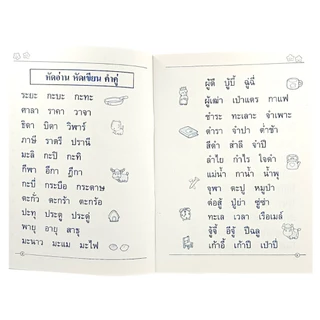 หัดอ่าน หัดเขียน คำคู่
ระยะ กะบะ กะทะ
ศาลา ราคา วาจา
ธิดา บิดา วิพาร์
ภาษี ราตรี ปรานี
มะลิ กะปิ กะทิ
กีฬา อีกา ฎีกา
กะบี่ กระบือ กระดาษ
ตะกั่ว ตะกร้า ตะกร้อ
ปะทุ ประตู ประดู่
พายุ อายุ สาธุ
มะนาว มะแม มะไฟ
ผู้ดี บู้บี้ ฉู่ฉี่
ผู้เฒ่า เป่าแตร กาแฟ
ชำระ ทะเลาะ จำเพาะ
ตำรา จำปา ต่ำช้า
สีดำ สำลี จำปี
ลำไย กำไร ใจดำ
แม่น้ำ กาน้ำ น้ำพุ
จุฬา ตะปู หมูป่า
ต่อสู้ ปู่ย่า ซู่ซ่า
ทะเล เวลา เรือเมล์
จู้จี้ อีจู้ ปีฉลู
เก้าอี้ เก้าปี เป่าปี่